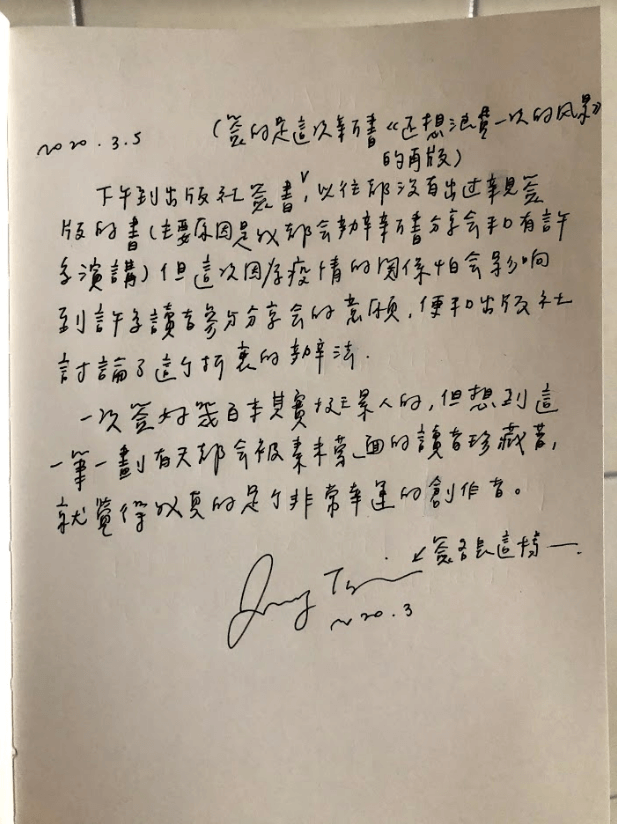 2020.3.5
(簽的是這次新書《还想浪費一次的风景》
的再版)
下午到出版社簽書,以往都沒有出过親簽
版的書(主要原因是以往都会執辛新書分享会和有許
多演講)但這次因为疫情的関係怕会影响
到許多讀者參与分享会的意願,便和出版社
討論了這个折衷的辦法.
一次簽好幾百本其實挺累人的,但想到這
一筆一劃有天都会被素未謀面的讀者珍藏著,
就覺得我真的是个非常幸運的創作者。
←簽名長這樣一.
2020.3